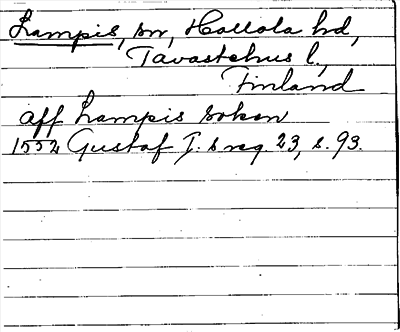 Lampis, sn, Hollola hd,
Tavastehus l.,
Finland
aff Lampis soken
1552 Gustaf I:s reg. 23, s. 93.